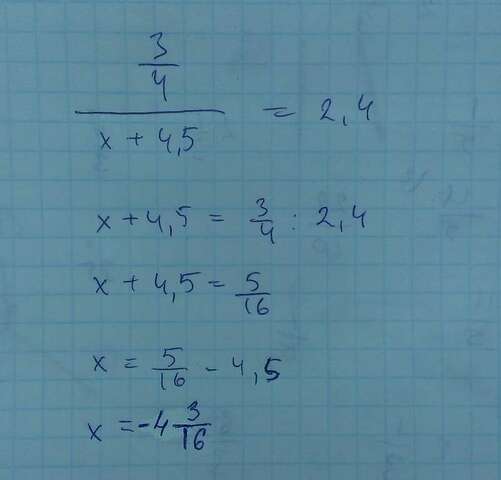 3/4 / (x + 4,5) = 2,4
x + 4,5 = 3/4 : 2,4
x + 4,5 = 5/16
x = 5/16 - 4,5
x = -4 3/16